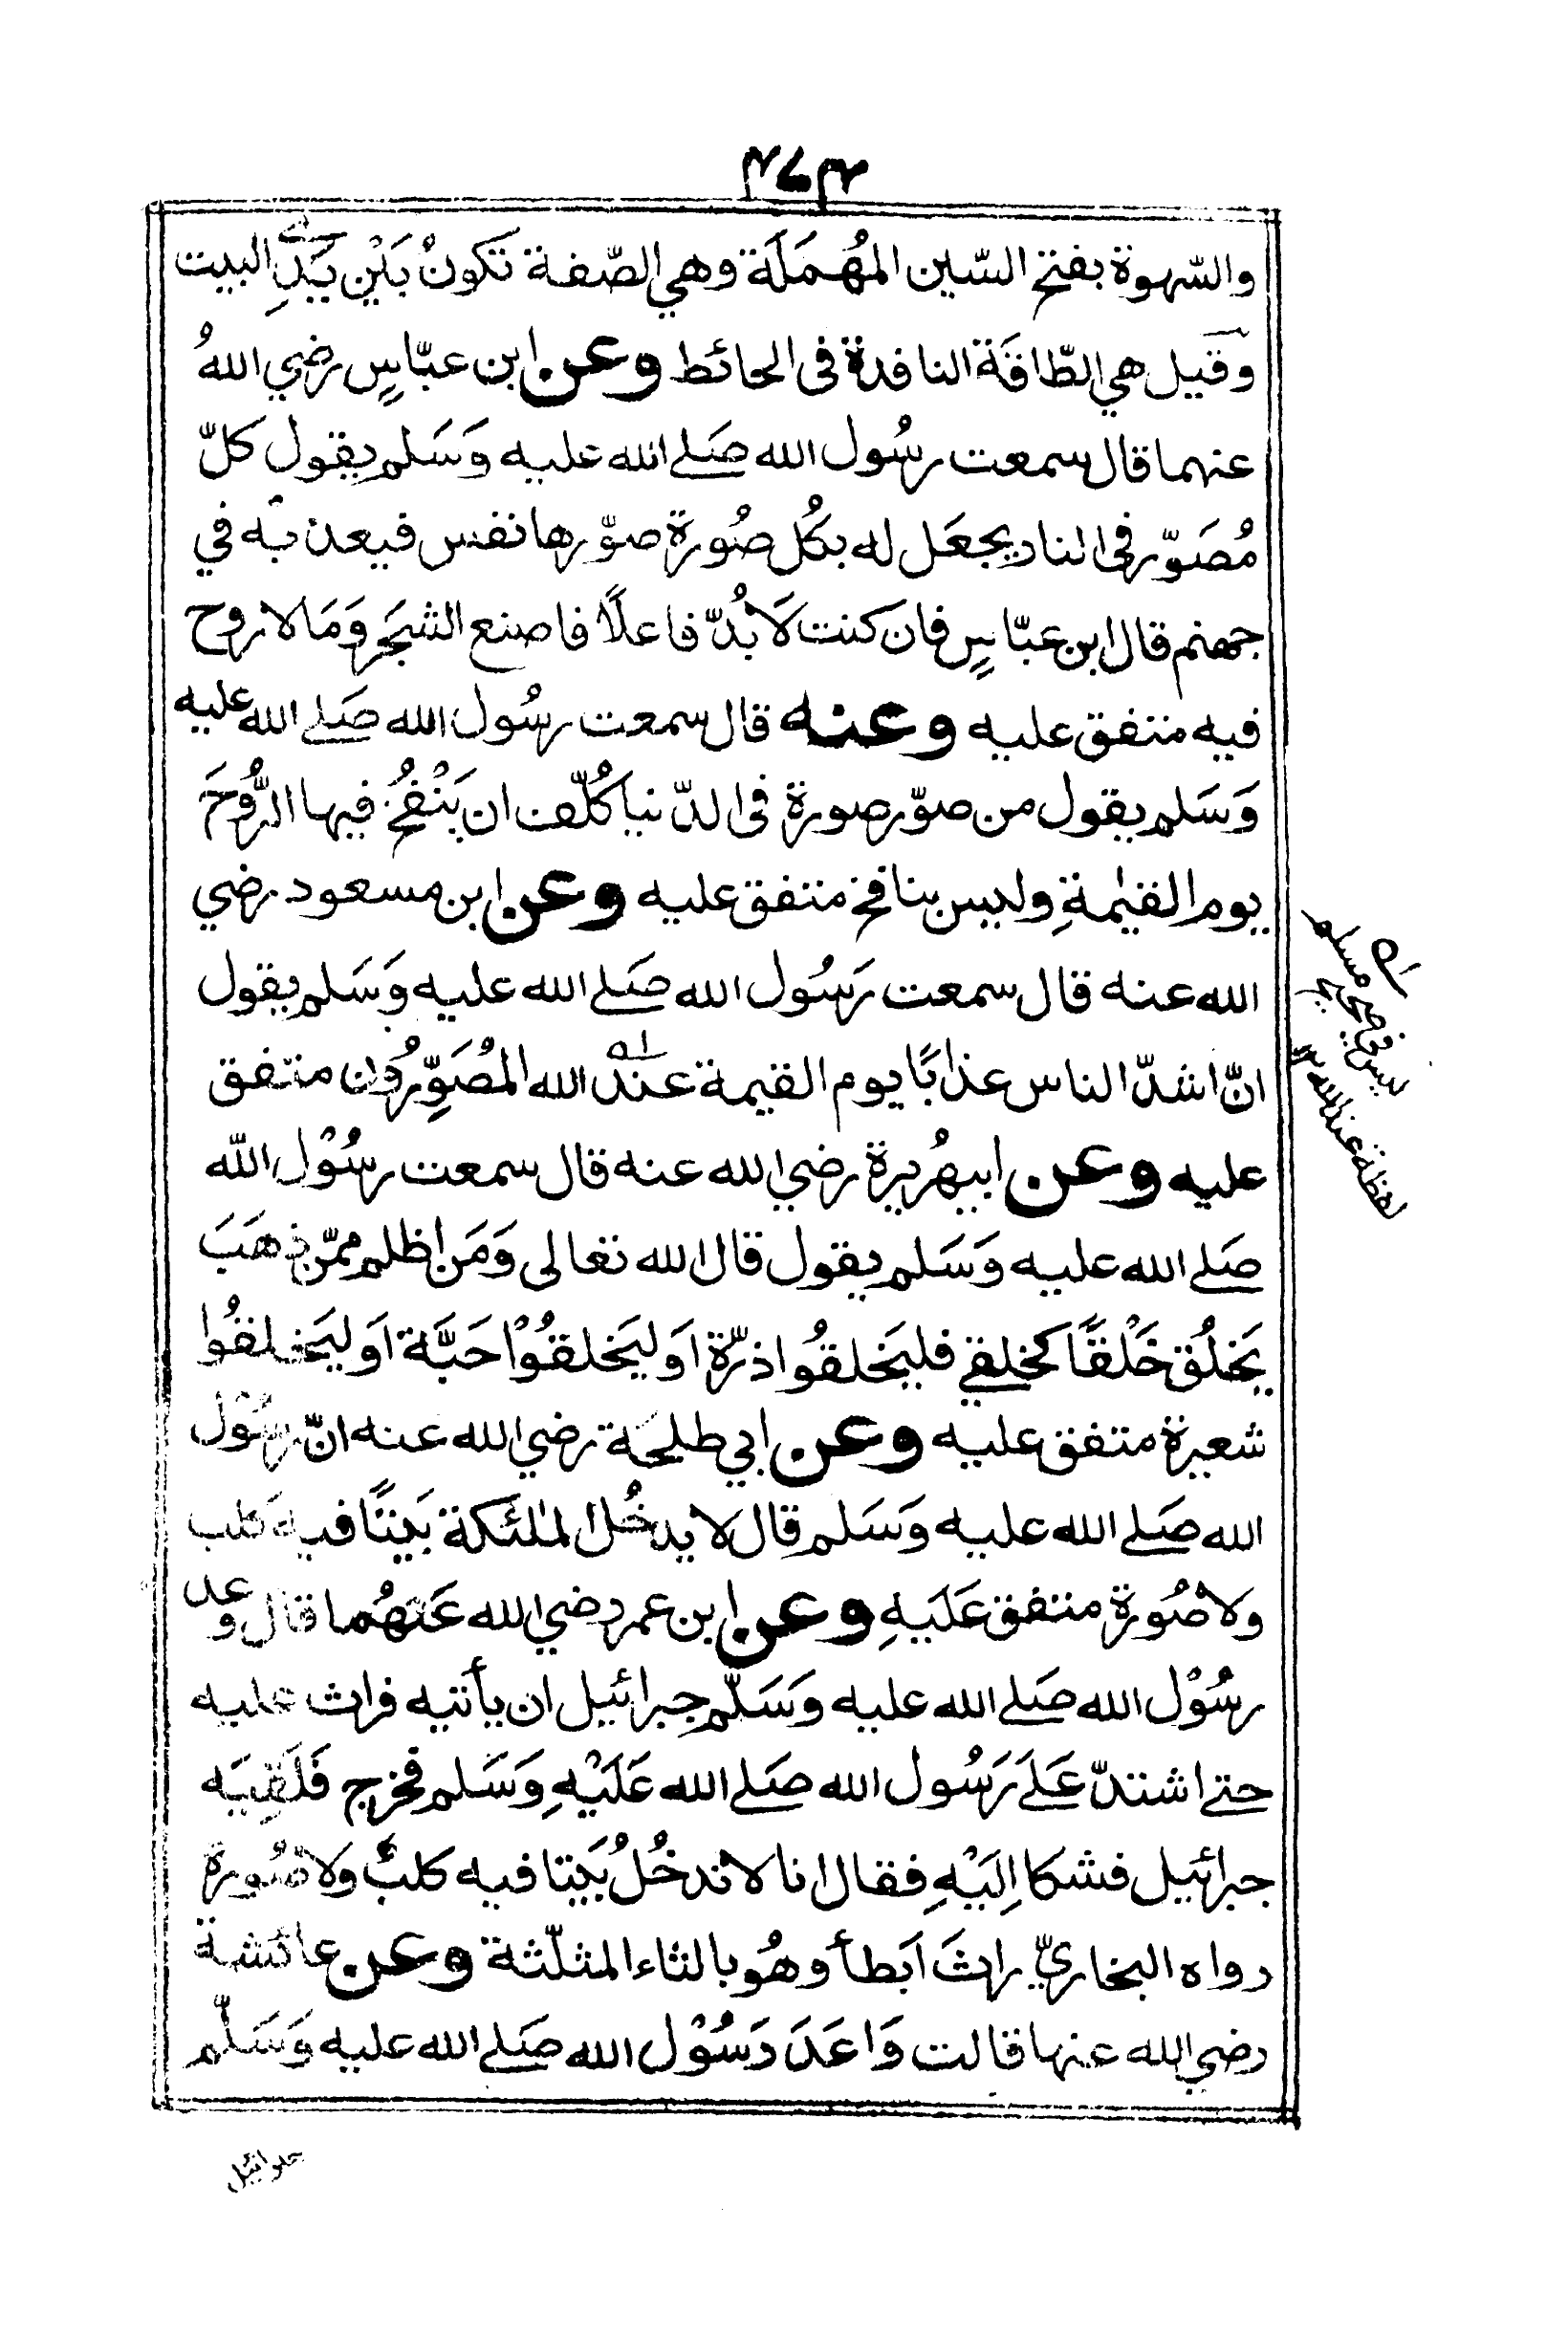 ٤٦٣
والسّهوة بفتح السّين المُهمَلَة وهي الصّفة تكونْ بَيْن يَدَيِ البيت
وَقيل هي الطّاقَة النافدة فى الحائط وعن ابن عبّاسٍ رضي اللهُ
عنهما قال سمعت رسُول الله صَلے الله عليه وَسَلم يقول كلّ
مُصَوّر فى النار يجعَل له بكُل صُورة صوّرها نفس فيعذبه في
جهنم قال ابن عبّاسٍ فان كنت لَا بُدّ فاعلًا فاصنع الشجَر وَمَا لا روح
فيه متفق عليه وعنه قال سمعت رسُول الله صَلے الله عليه
وَسَلم يقول من صوّر صورة فى الدّنيا كُلّف ان يَنْفُخَ فيها الرُّوحَ
يوم القيٰمةِ وليس بنافخ متفق عليه وعن ابن مسعود رضي
الله عنه قال سمعت رَسُول الله صَلے الله عليه وَسَلم يقول
انّ اشدّ الناس عذابًا يوم القيمة عند الله المُصَوِّرُون متفق
عليه وعن ابيهُريرة رضي الله عنه قال سمعت رسُوْل الله
صَلے الله عليه وَسَلم يقول قال الله تعالى وَمَن اظلم ممّن ذهَبَ
يَخلُق خَلْقًا كخلقے فليَخلقُوا ذرّة اَو ليَخلقُوْا حَبَّة اَو ليَخلقُوا
شعيرة متفق عليه وعن ابي طلحَة رضي الله عنه انّ رسُوْل
الله صَلے الله عليه وَسَلم قال لا يدخُل الملٰئكة بَيتًا فيه كلب
ولا صُورة متفق عَلَيهِ وعن ابن عمر رضي الله عَنهُما قال وعد
رسُوْل الله صَلے الله عليه وَسَلّم جِبرائيل ان يأتيه فراث عليه
حتے اشتدّ عَلےَ رَسُول الله صَلے الله عَلَيْهِ وَسَلم فخرج فَلَقِيَه
جبرائيل فشكا اِلَيْهِ فقال انا لا ندخُلُ بَيتا فيه كلبٌ ولا صُورة
رواه البخاريّ راثَ اَبطأ وهُو بالثاء المثلّثة وعن عائشة
رضي الله عنها قالت وَاعَدَ رَسُوْل الله صَلے الله عليه وَسَلّم
له
ليس فى صحيح مسلم
لفظة عند الله
جبرائيل